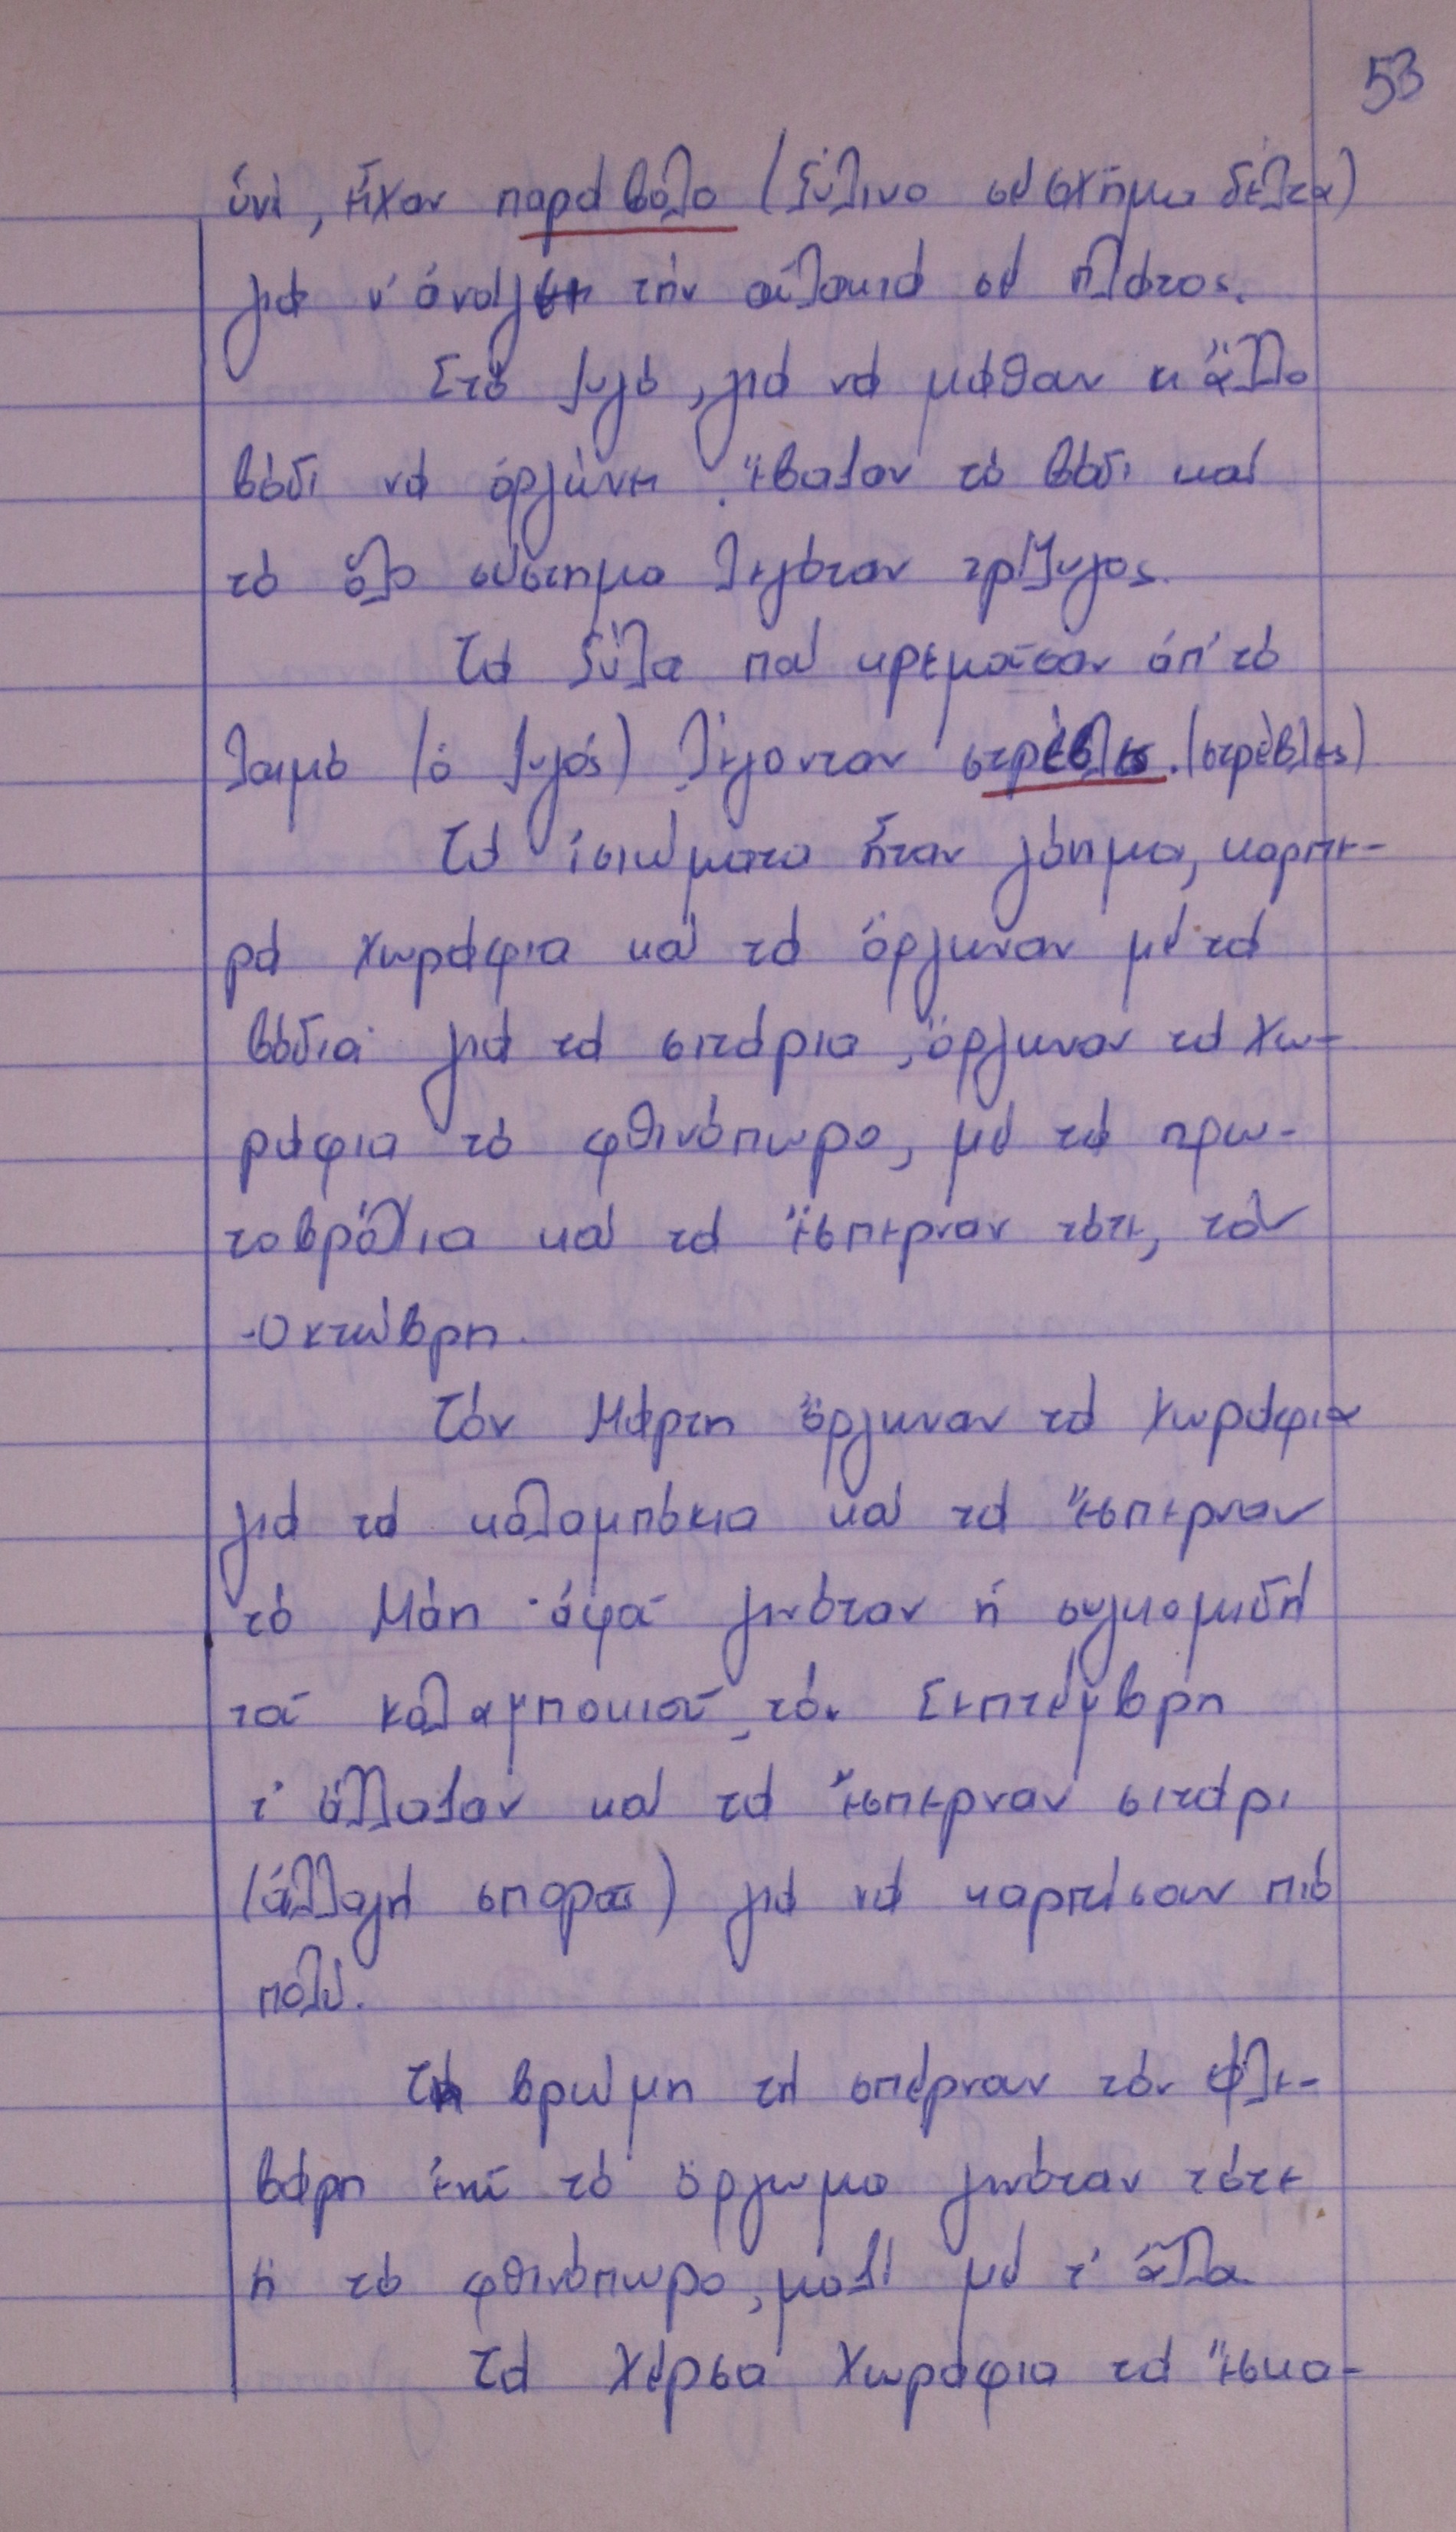 53
ὑνί, εἶχαν παραβόλο (ξύλινο σὲ σχῆμα δέλτα)
γιὰ ν' ἀνοίγει τὴν αὐλακιὰ σὲ πλάτος.
Στὸ ζυγό, γιὰ νὰ μάθαν κι ἄλλο
βόδι νὰ ὀργώνει ἔβαζαν τὸ βόδι καὶ
τὸ ὅλο σύστημα λεγόταν τρίζυγος.
Τὰ ξύλα ποὺ κρεμοῦσαν ἀπ' τὸ
λαιμὸ (ὁ ζυγός) λέγονταν στρέβλες. (στρέβλες)
Τὰ ἰσιώματα ἦταν γόνιμα, καρπε-
ρὰ χωράφια καὶ τὰ ὄργωναν μὲ τὰ
βόδια γιὰ τὰ σιτάρια, ὄργωναν τὰ χω-
ράφια τὸ φθινόπωρο, μὲ τὰ πρω-
τοβρόχια καὶ τὰ ἔσπερναν τότε, τὸν
Ὀκτώβρη.
Τὸν Μάρτη ὄργωναν τὰ χωράφια
γιὰ τὰ καλαμπόκια καὶ τὰ ἔσπερναν
τὸ Μάη· ἀφοῦ γινόταν ἡ συγκομιδὴ
τοῦ καλαμποκιοῦ τὸν Σεπτέμβρη
τ' ἄλλαζαν καὶ τὰ ἔσπερναν σιτάρι
(ἀλλαγὴ σπορᾶς) γιὰ νὰ καρπίσουν πιὸ
πολύ.
Τὴ βρώμη τὴ σπέρναν τὸν Φλε-
βάρη ἐκεῖ τὸ ὄργωμα γινόταν τότε
ἢ τὸ φθινόπωρο, μαζὶ μὲ τ' ἄλλα
Τὰ χέρσα χωράφια τὰ ἔσκα-